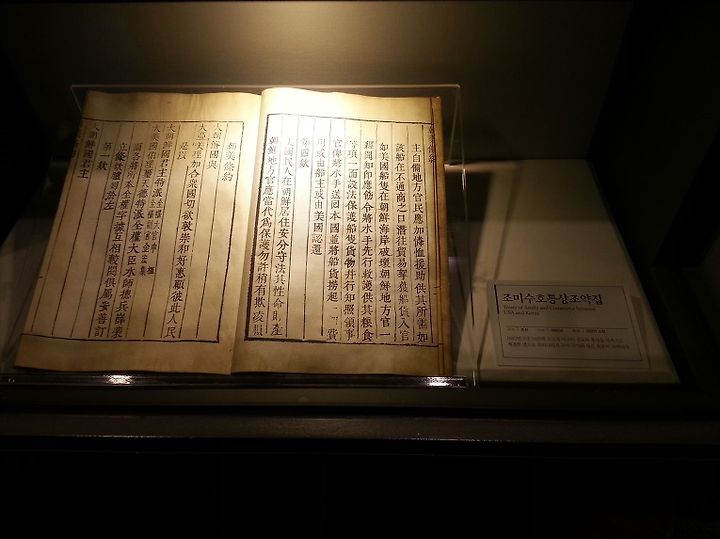 主自備地方官民應加憐恤援助供其所需如
該船在不通商之口潛往貿易拏獲船貨入官
如美國船隻在朝鮮海岸破壞朝鮮地方官一
經聞知即應飭令將水手先行救護供其糧食
等項一面設法保護船隻貨物并行知照領事
官俾將水手送回本國並將船貨撈起一切費
用或由船主或由美國認還
第四款
美國民人在朝鮮居住安分守法其性命財產
朝鮮地方官應當代爲保護勿許稍有欺凌損
朝美條約
大朝鮮國與
大亞美理加合衆國切欲敦崇和好惠顧彼此人民
是以
大朝鮮國君主特派全權大官申櫶
全權副官金宏集
大美國伯理璽天德特派全權大臣水師總兵薛斐
諭各將所奉全權字據互相較閱俱屬妥善訂
立條款臚列於左
第一款
大朝鮮國君主
조미수호통상조약집
Treaty of Amity and Commerce between
USA and Korea